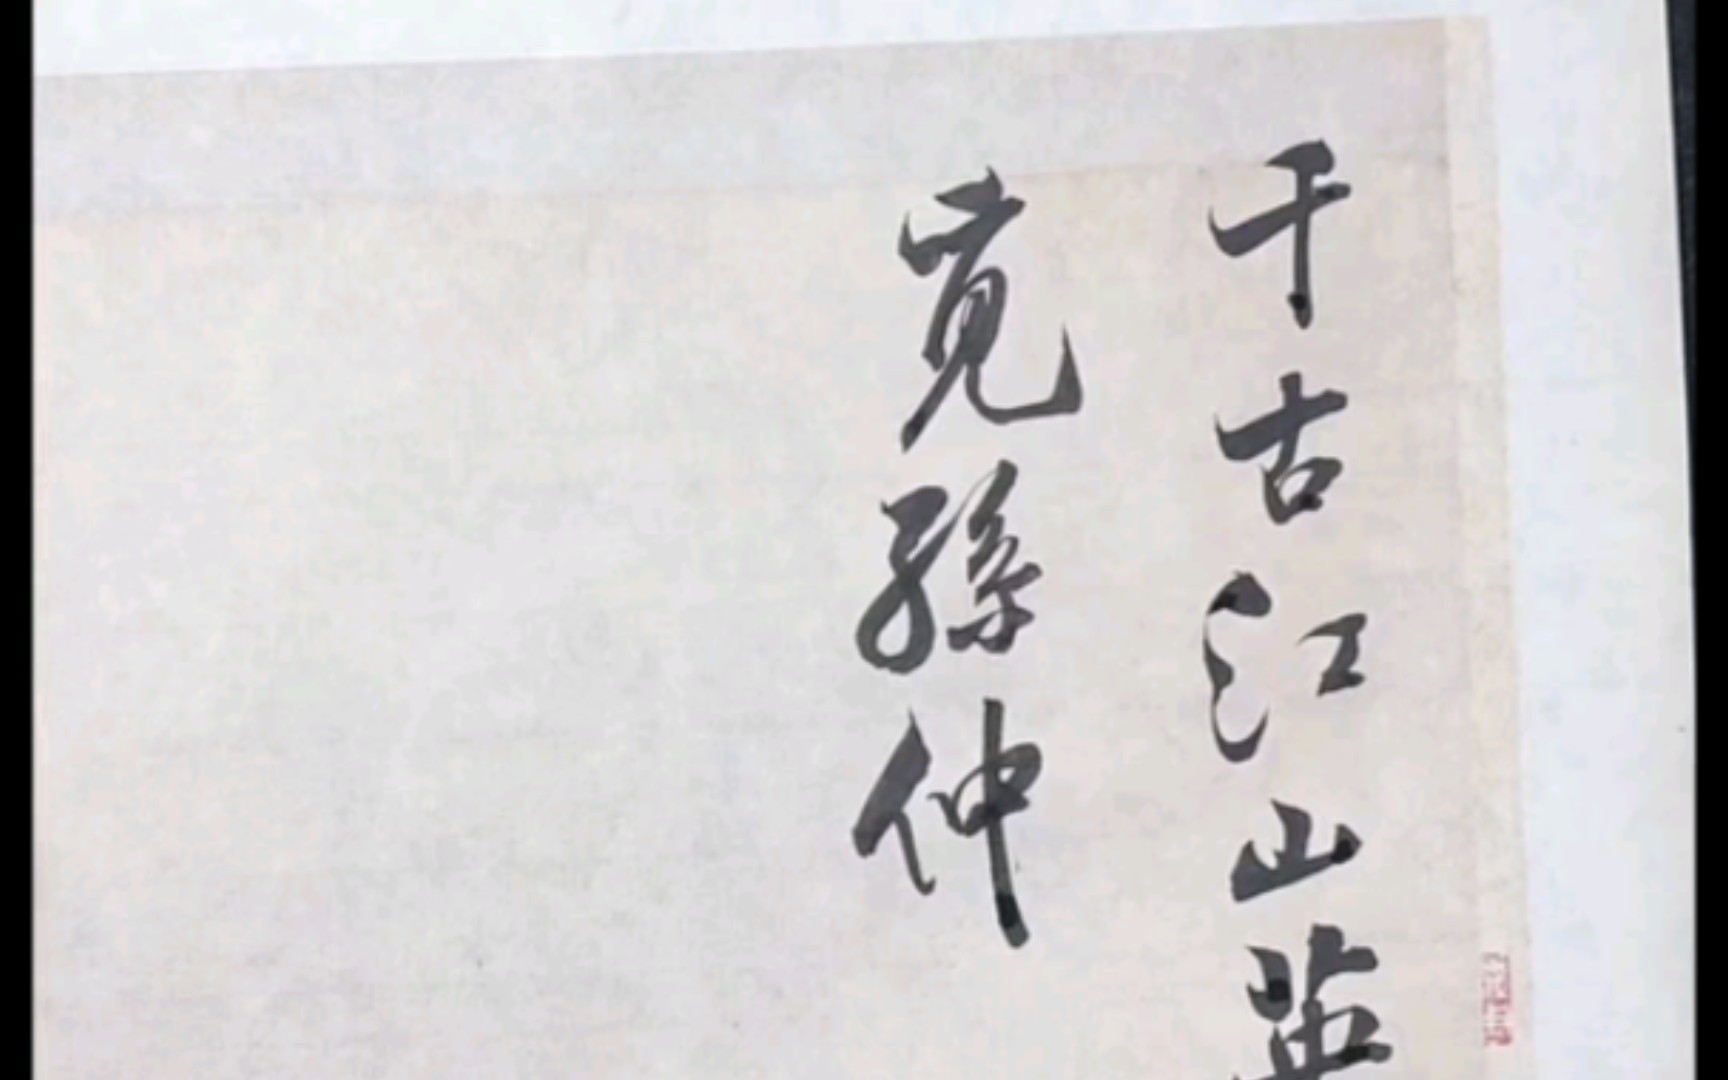 千古江山英
覓孫仲